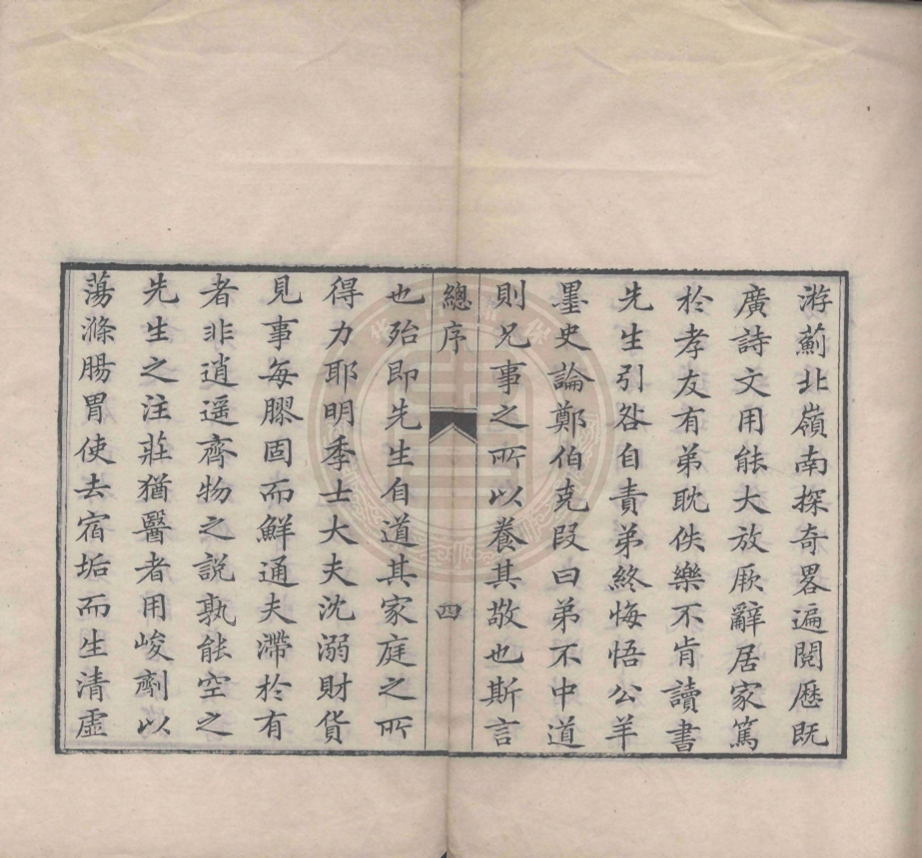 游薊北嶺南探奇畧遍閱歷既
廣詩文用能大放厥辭居家篤
於孝友有弟耽佚樂不肯讀書
先生引咎自責弟終悔悟公羊
墨史論鄭伯克段曰弟不中道
則兄事之所以養其敬也斯言
總序
四
也殆即先生自道其家庭之所
得力耶明季士大夫沈溺財貨
見事每膠固而鮮通夫滯於有
者非逍遥齊物之說孰能空之
先生之注莊猶醫者用峻劑以
蕩滌腸胃使去宿垢而生清虛